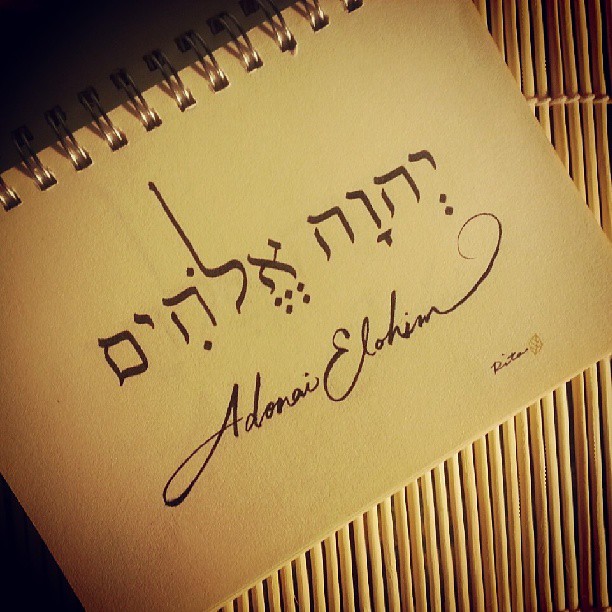 יֶהוָה אֱלֹהִים
Adonai Elohim
Rita